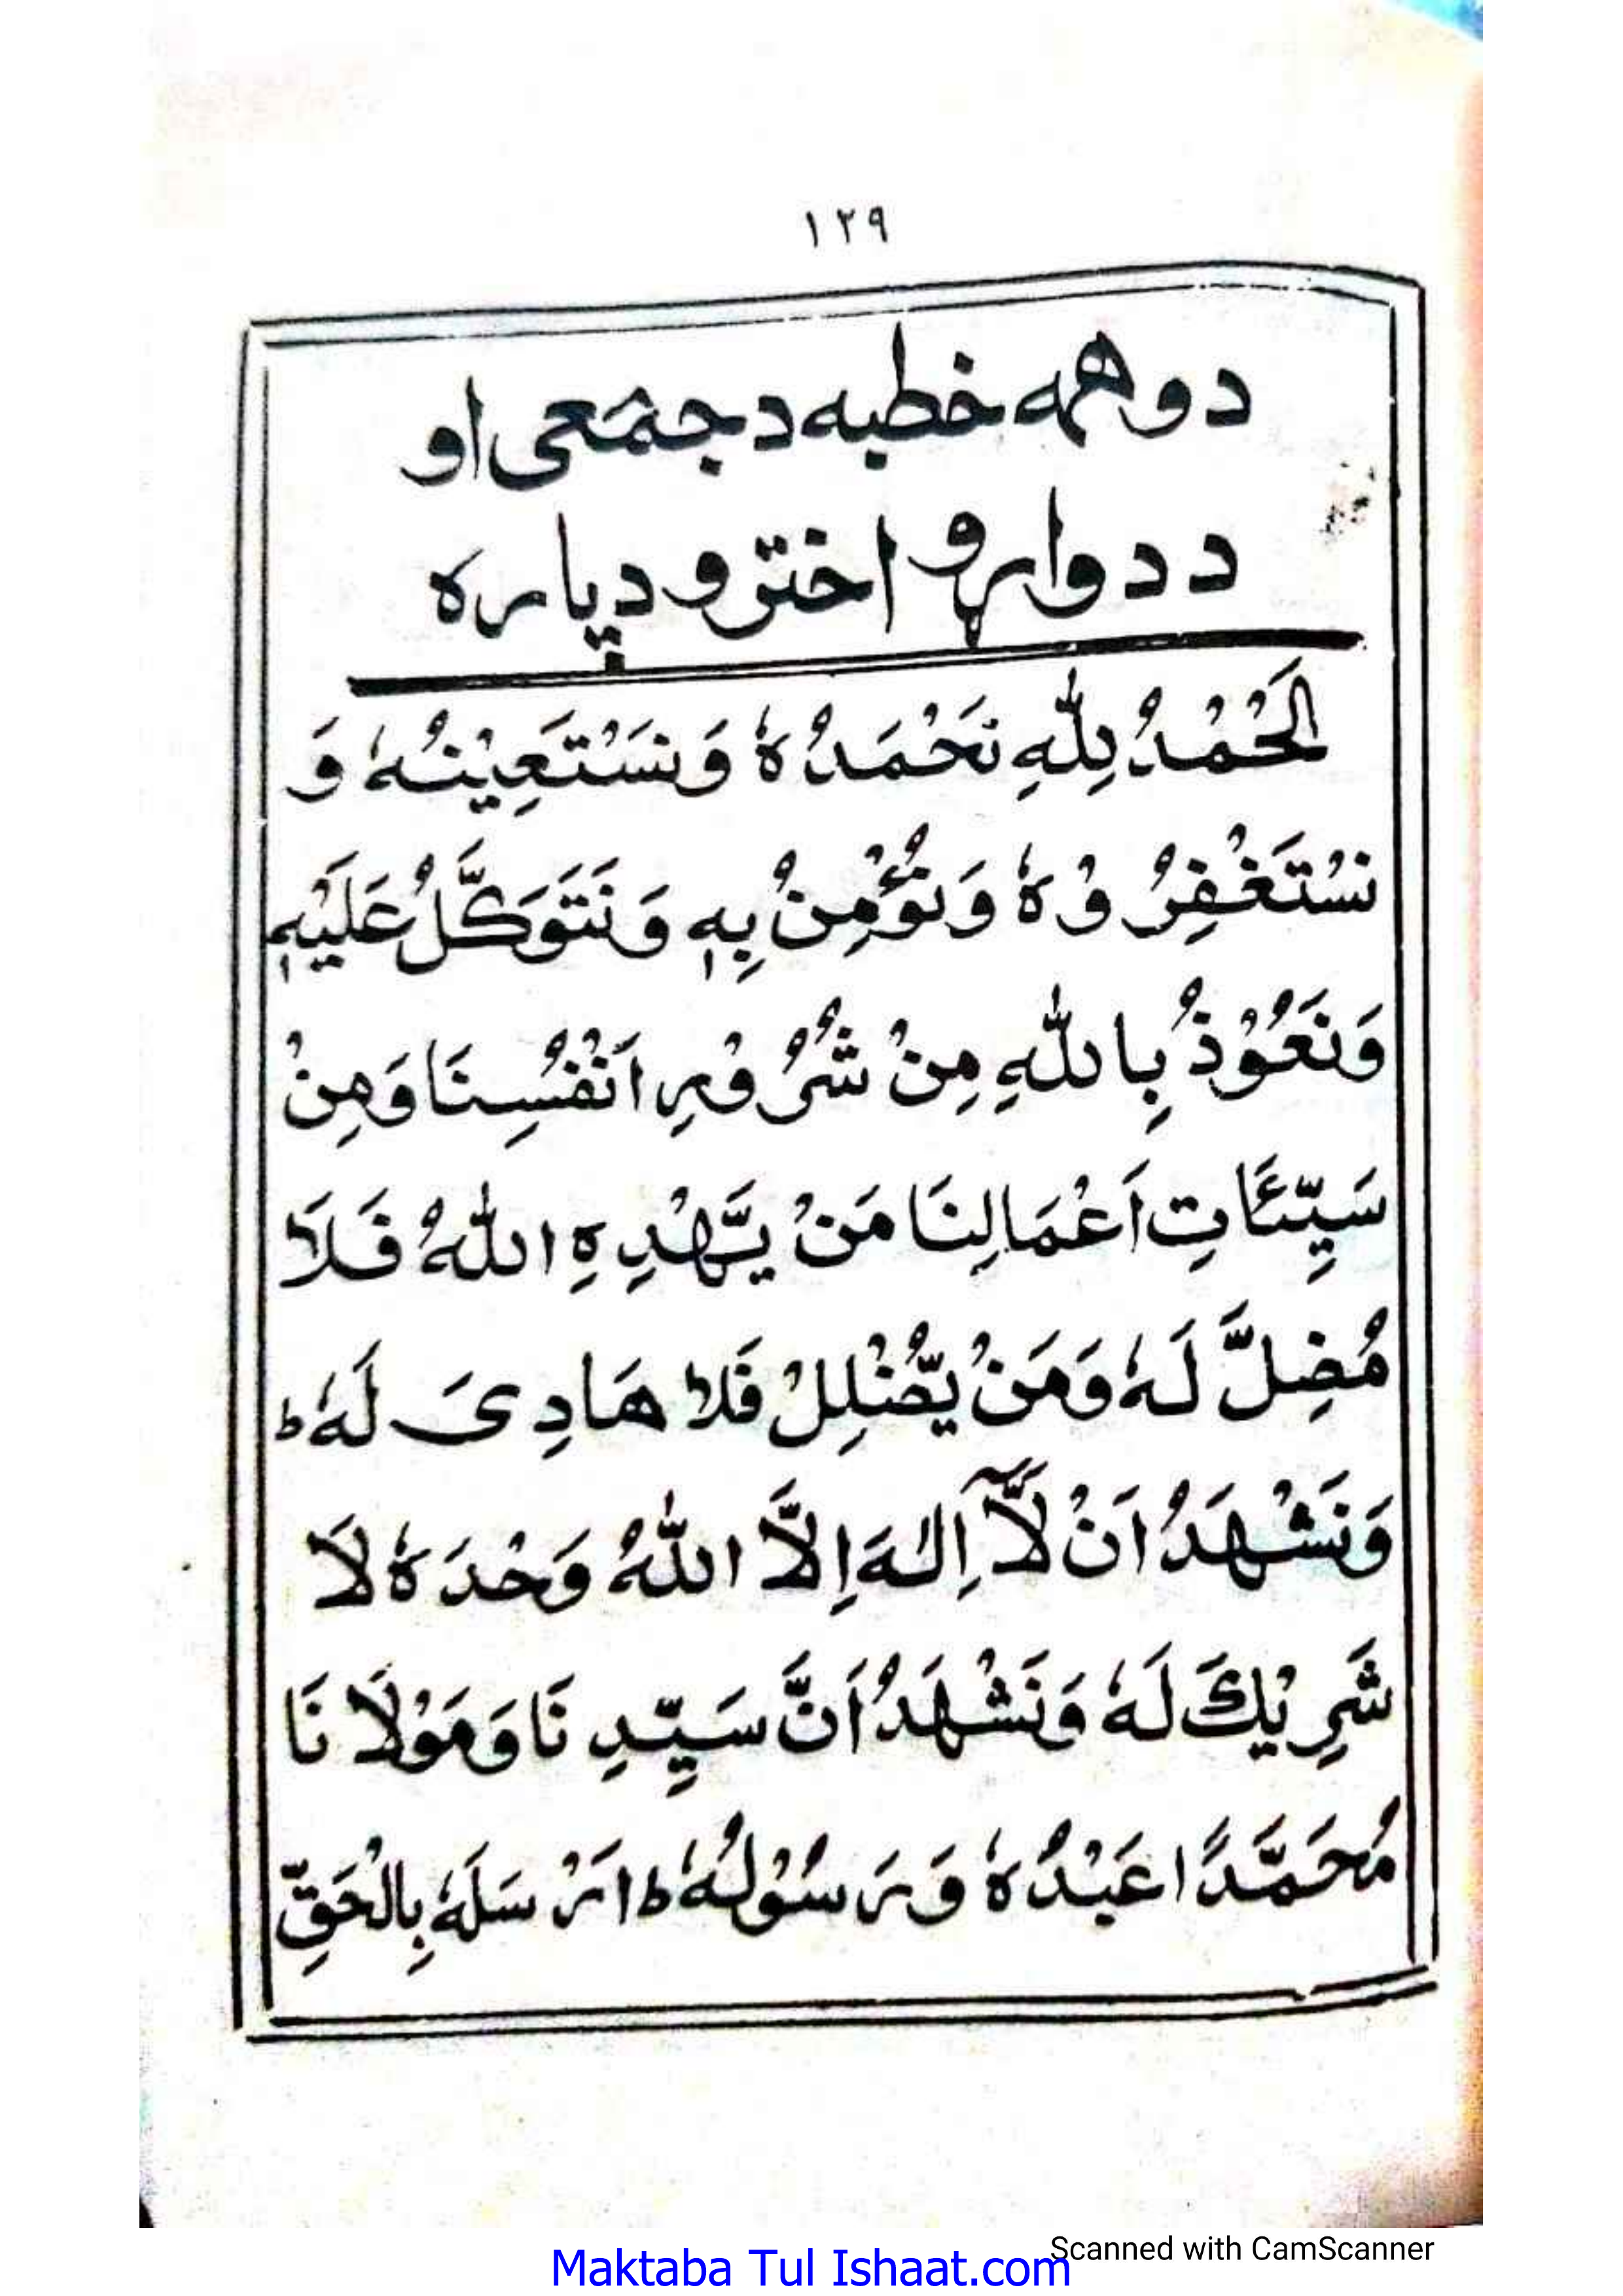 ١٢٩
دوهمه خطبه د جمعى او
د دواړو اخترو دپاره
اَلْحَمْدُ لِلّٰهِ نَحْمَدُهٗ وَنَسْتَعِيْنُهٗ وَ
نَسْتَغْفِرُوْهٗ وَنُؤْمِنُ بِهٖ وَنَتَوَكَّلُ عَلَيْهِ
وَنَعُوْذُ بِاللّٰهِ مِنْ شُرُوْرِ اَنْفُسِنَا وَمِنْ
سَيِّئَاتِ اَعْمَالِنَا مَنْ يَّهْدِهِ اللّٰهُ فَلَا
مُضِلَّ لَهٗ وَمَنْ يُّضْلِلْ فَلَا هَادِىَ لَهٗ ط
وَنَشْهَدُ اَنْ لَّآ اِلٰهَ اِلَّا اللّٰهُ وَحْدَهٗ لَا
شَرِيْكَ لَهٗ وَنَشْهَدُ اَنَّ سَيِّدِنَا وَمَوْلَانَا
مُحَمَّدًا عَبْدُهٗ وَرَسُوْلُهٗ ط اَرْسَلَهٗ بِالْحَقِّ
Scanned with CamScanner
Maktaba Tul Ishaat.com